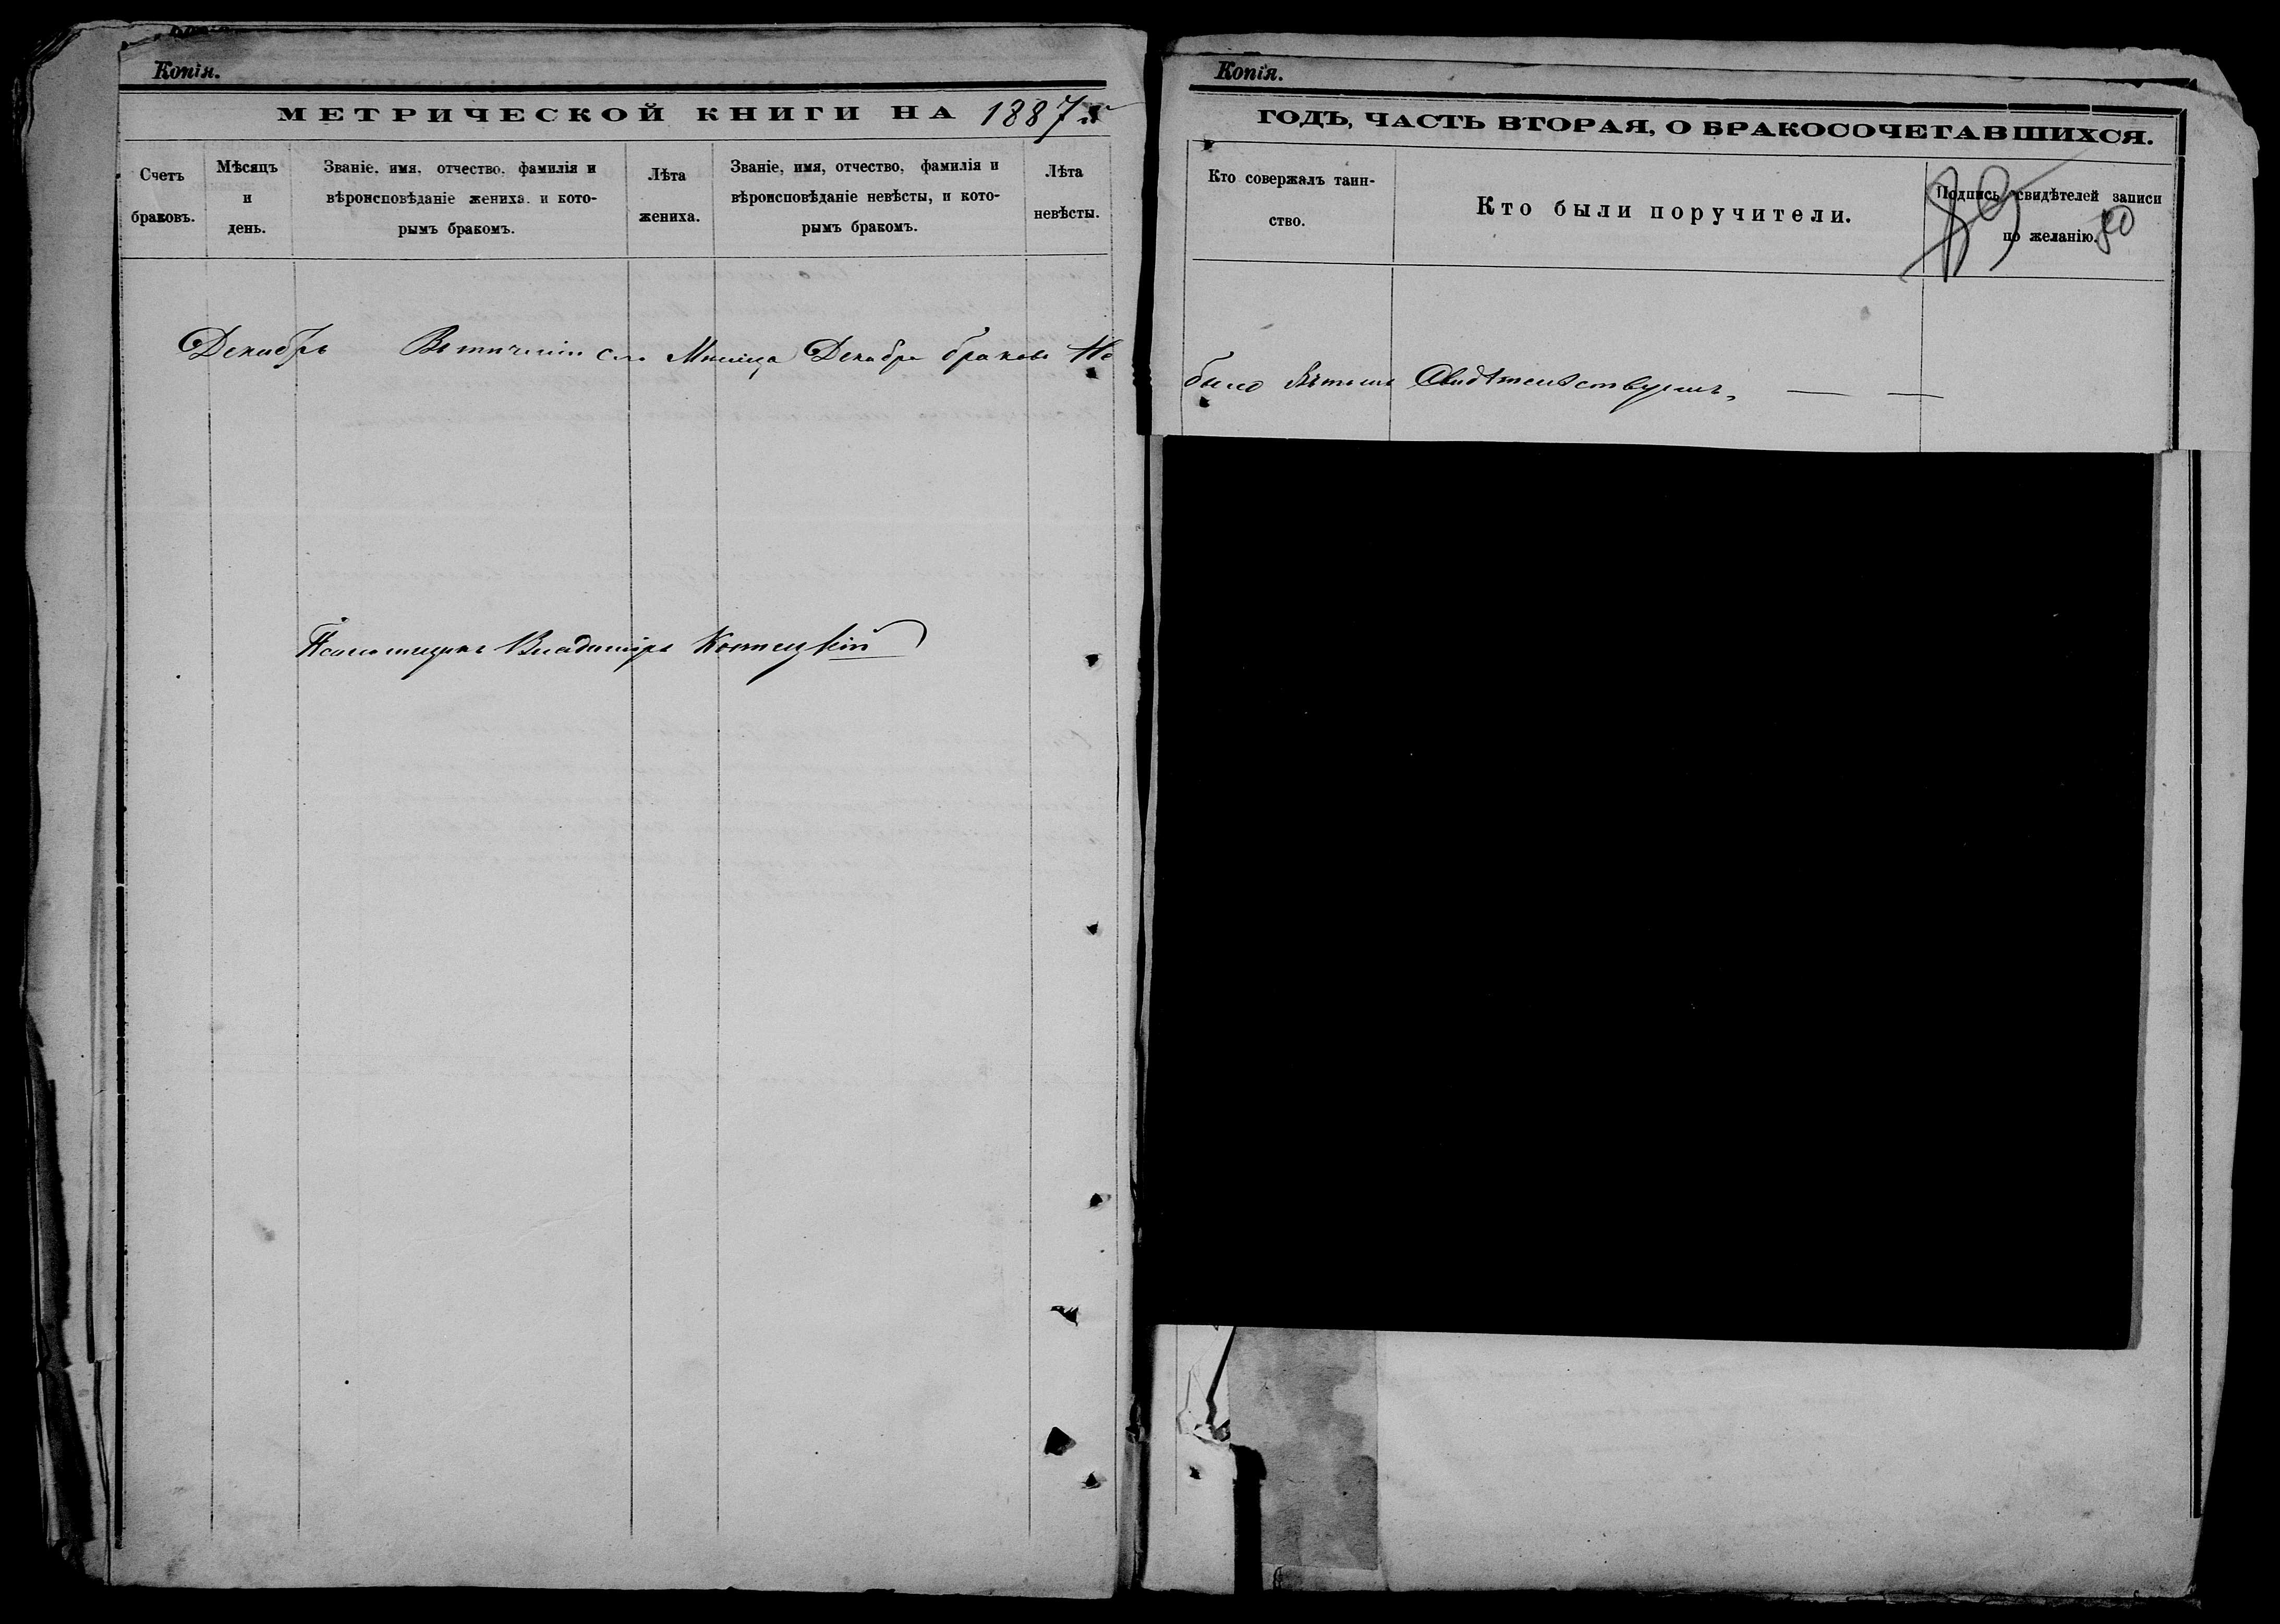 Копія.
МЕТРИЧЕСКОЙ КНИГИ НА 1887 г
Счетъ браковъ.
Мѣсяцъ и день.
Званіе, имя, отчество, фамилія и
вѣроисповѣданіе жениха, и кото-
рымъ бракомъ.
Лѣта жениха.
Званіе, имя, отчество, фамилія и
вѣроисповѣданіе невѣсты, и кото-
рымъ бракомъ.
Лѣта невѣсты.
Декабрь Въ теченіи сего Мѣсяца Декабря браковъ Не
Псаломщикъ Владиміръ
Копія.
ГОДЪ, ЧАСТЬ ВТОРАЯ, О БРАКОСОЧЕТАВШИХСЯ.
Кто совержалъ таин-
ство.
Кто были поручители.
Подпись свидѣтелей записи
по желанію.
89
80
было Въ томъ Свидѣтельствуемъ